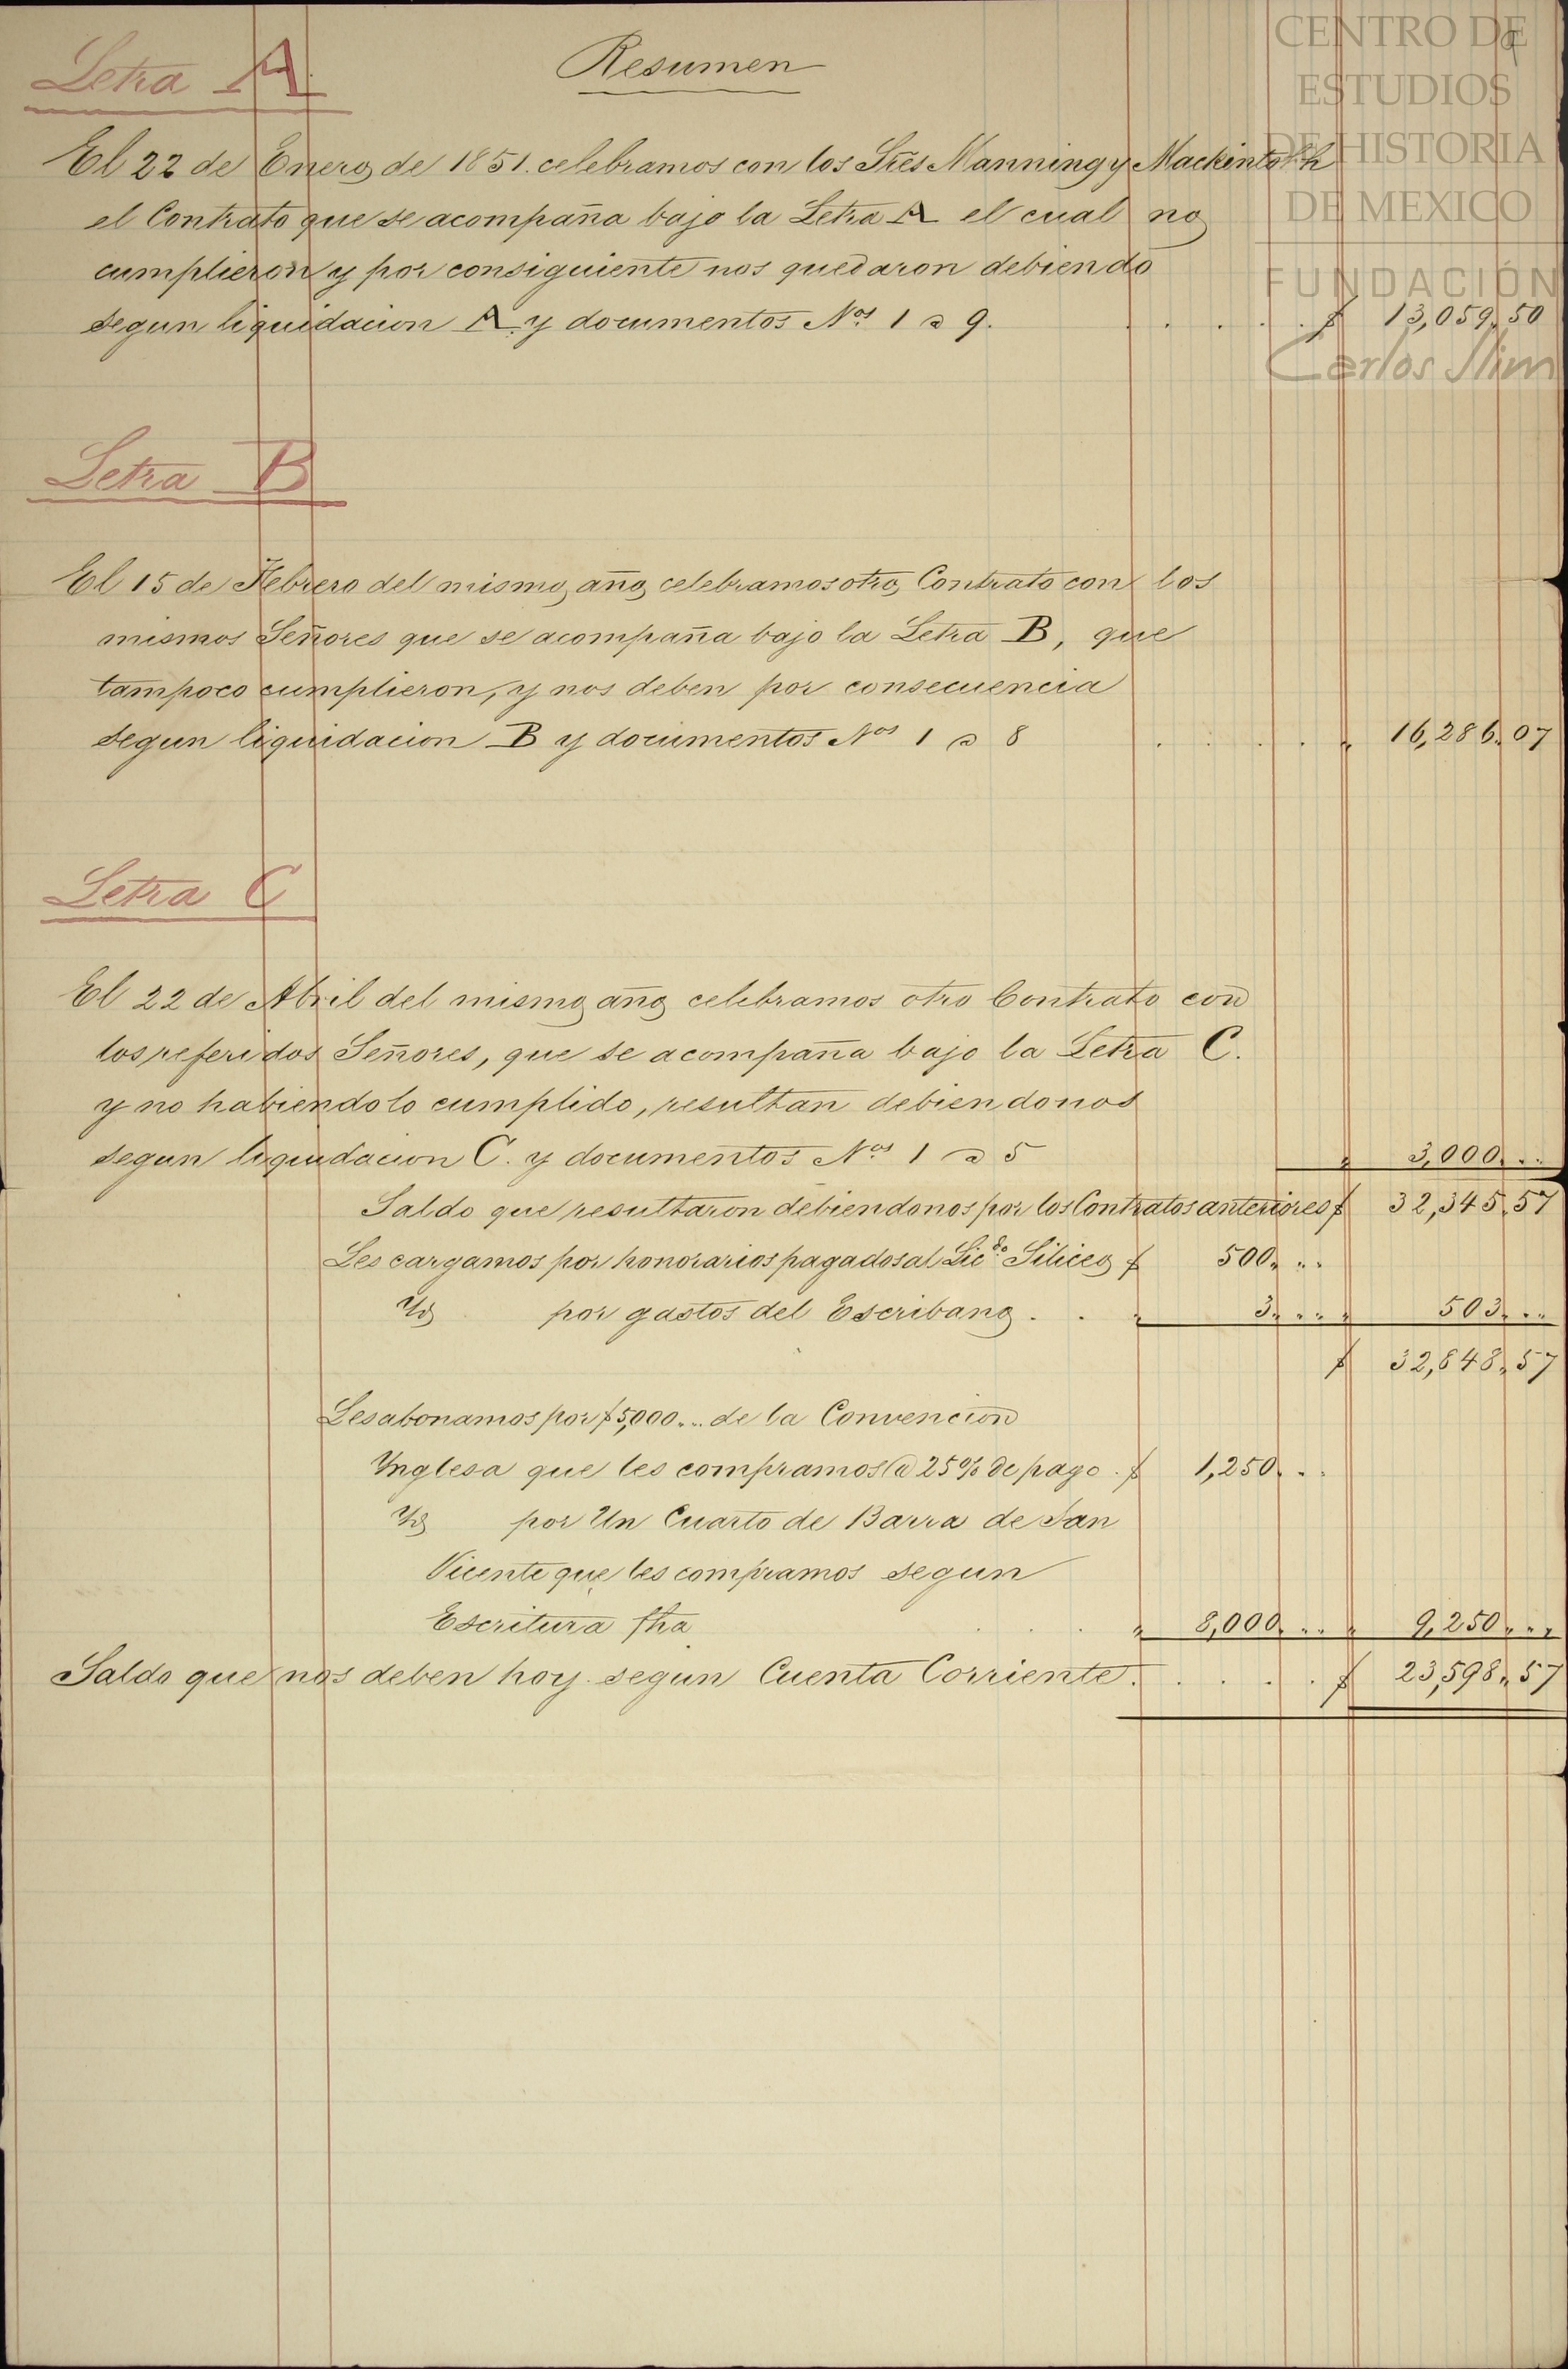 Resumen
Letra A.
El 22 de Enero de 1851. celebramos con los Sres Manning y Mackintosh
el Contrato que se acompaña bajo la Letra A el cual no
cumplieron y por consiguiente nos quedaron debiendo
segun liquidacion A. y documentos Nos 1 a 9. . . . . . $ 13,059,,50
Letra B
El 15 de Febrero del mismo año celebramos otro Contrato con los
mismos Señores que se acompaña bajo la Letra B, que
tampoco cumplieron, y nos deben por consecuencia
segun liquidacion B y documentos Nos 1 a 8 . . . . ,, 16,286,,07
Letra C
El 22 de Abril del mismo año celebramos otro Contrato con
los referidos Señores, que se acompaña bajo la Letra C.
y no habiendolo cumplido, resultan debiendonos
segun liquidacion C. y documentos Nos 1 a 5 ,, 3,000,,..
Saldo que resultaron debiendonos por los Contratos anteriores $ 32,345,,57
Les cargamos por honorarios pagados al Licdo. Siliceo $ 500,,..
Yd por gastos del Escribano . . ,, 3,,.. ,, 503,,..
$ 32,848,,57
Les abonamos por $5,000... de la Convencion
Ynglesa que les compramos @ 25% de pago . $ 1,250,..
Yd por Un Cuarto de Barra de San
Vicente que les compramos segun
Escritura fha . . . ,, 8,000,,.. ,, 9,250,,..
Saldo que nos deben hoy segun Cuenta Corriente. . . . . $ 23,598,,57
CENTRO DE
ESTUDIOS
DE HISTORIA
DE MEXICO
FUNDACIÓN
Carlos Slim